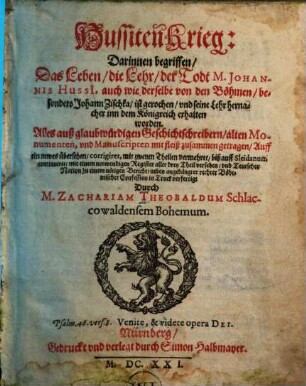 Hussiten Krieg:
Darinnen begriffen/
Das Leben/ die Lehr/ der Todt M. JOHAN-
NIS Hussi, auch wie derselbe von den Böhmen/ be-
sonders Johann Zischka/ ist gerochen/ und seine Lehr herna-
cher inn dem Königreich erhalten
worden.
Alles auß glaubwürdigen Geschichtschreibern/ alten Mo-
numenten, und Manuscripten mit fleiß zusammen getragen/ Auff
ein newes übersehen/ corrigiret, mit zweyen Theilen vermehret/ biß auff Sleidanum
continuirt/ mit einem notwendigen Register aller drey Theil versehen/ und Teutscher
Nation zu einem nötigen Bericht/ neben angehängter rechter Böh-
mischer Confession in Truck verfertigt
Durch
M. ZACHARIAM THEOBALDUM Schlac-
cowaldensem Bohemum.
Psalm. 46. vers. 8. Venite, & videte opera DEI.
Nürnberg/
Gedruckt und verlegt durch Simon Halbmayer.
M. DC. XXI.